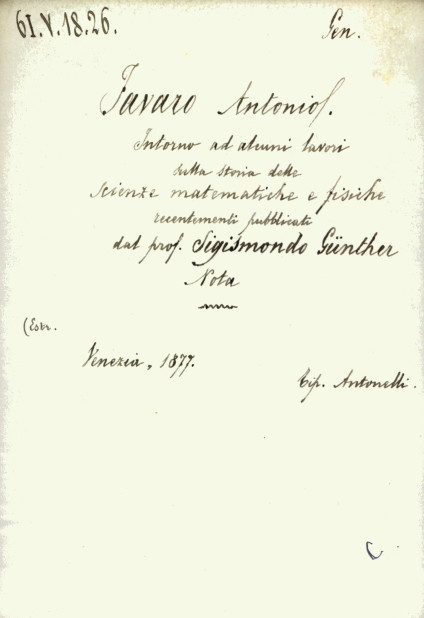 61.V.18.26.
Gen.
Favaro Antonio.
Intorno ad alcuni lavori
sulla storia delle
scienze matematiche e fisiche
recentementi pubblicati
dal prof. Sigismondo Günther
Nota
(Estr.
Venezia, 1877.
Tip. Antonelli.